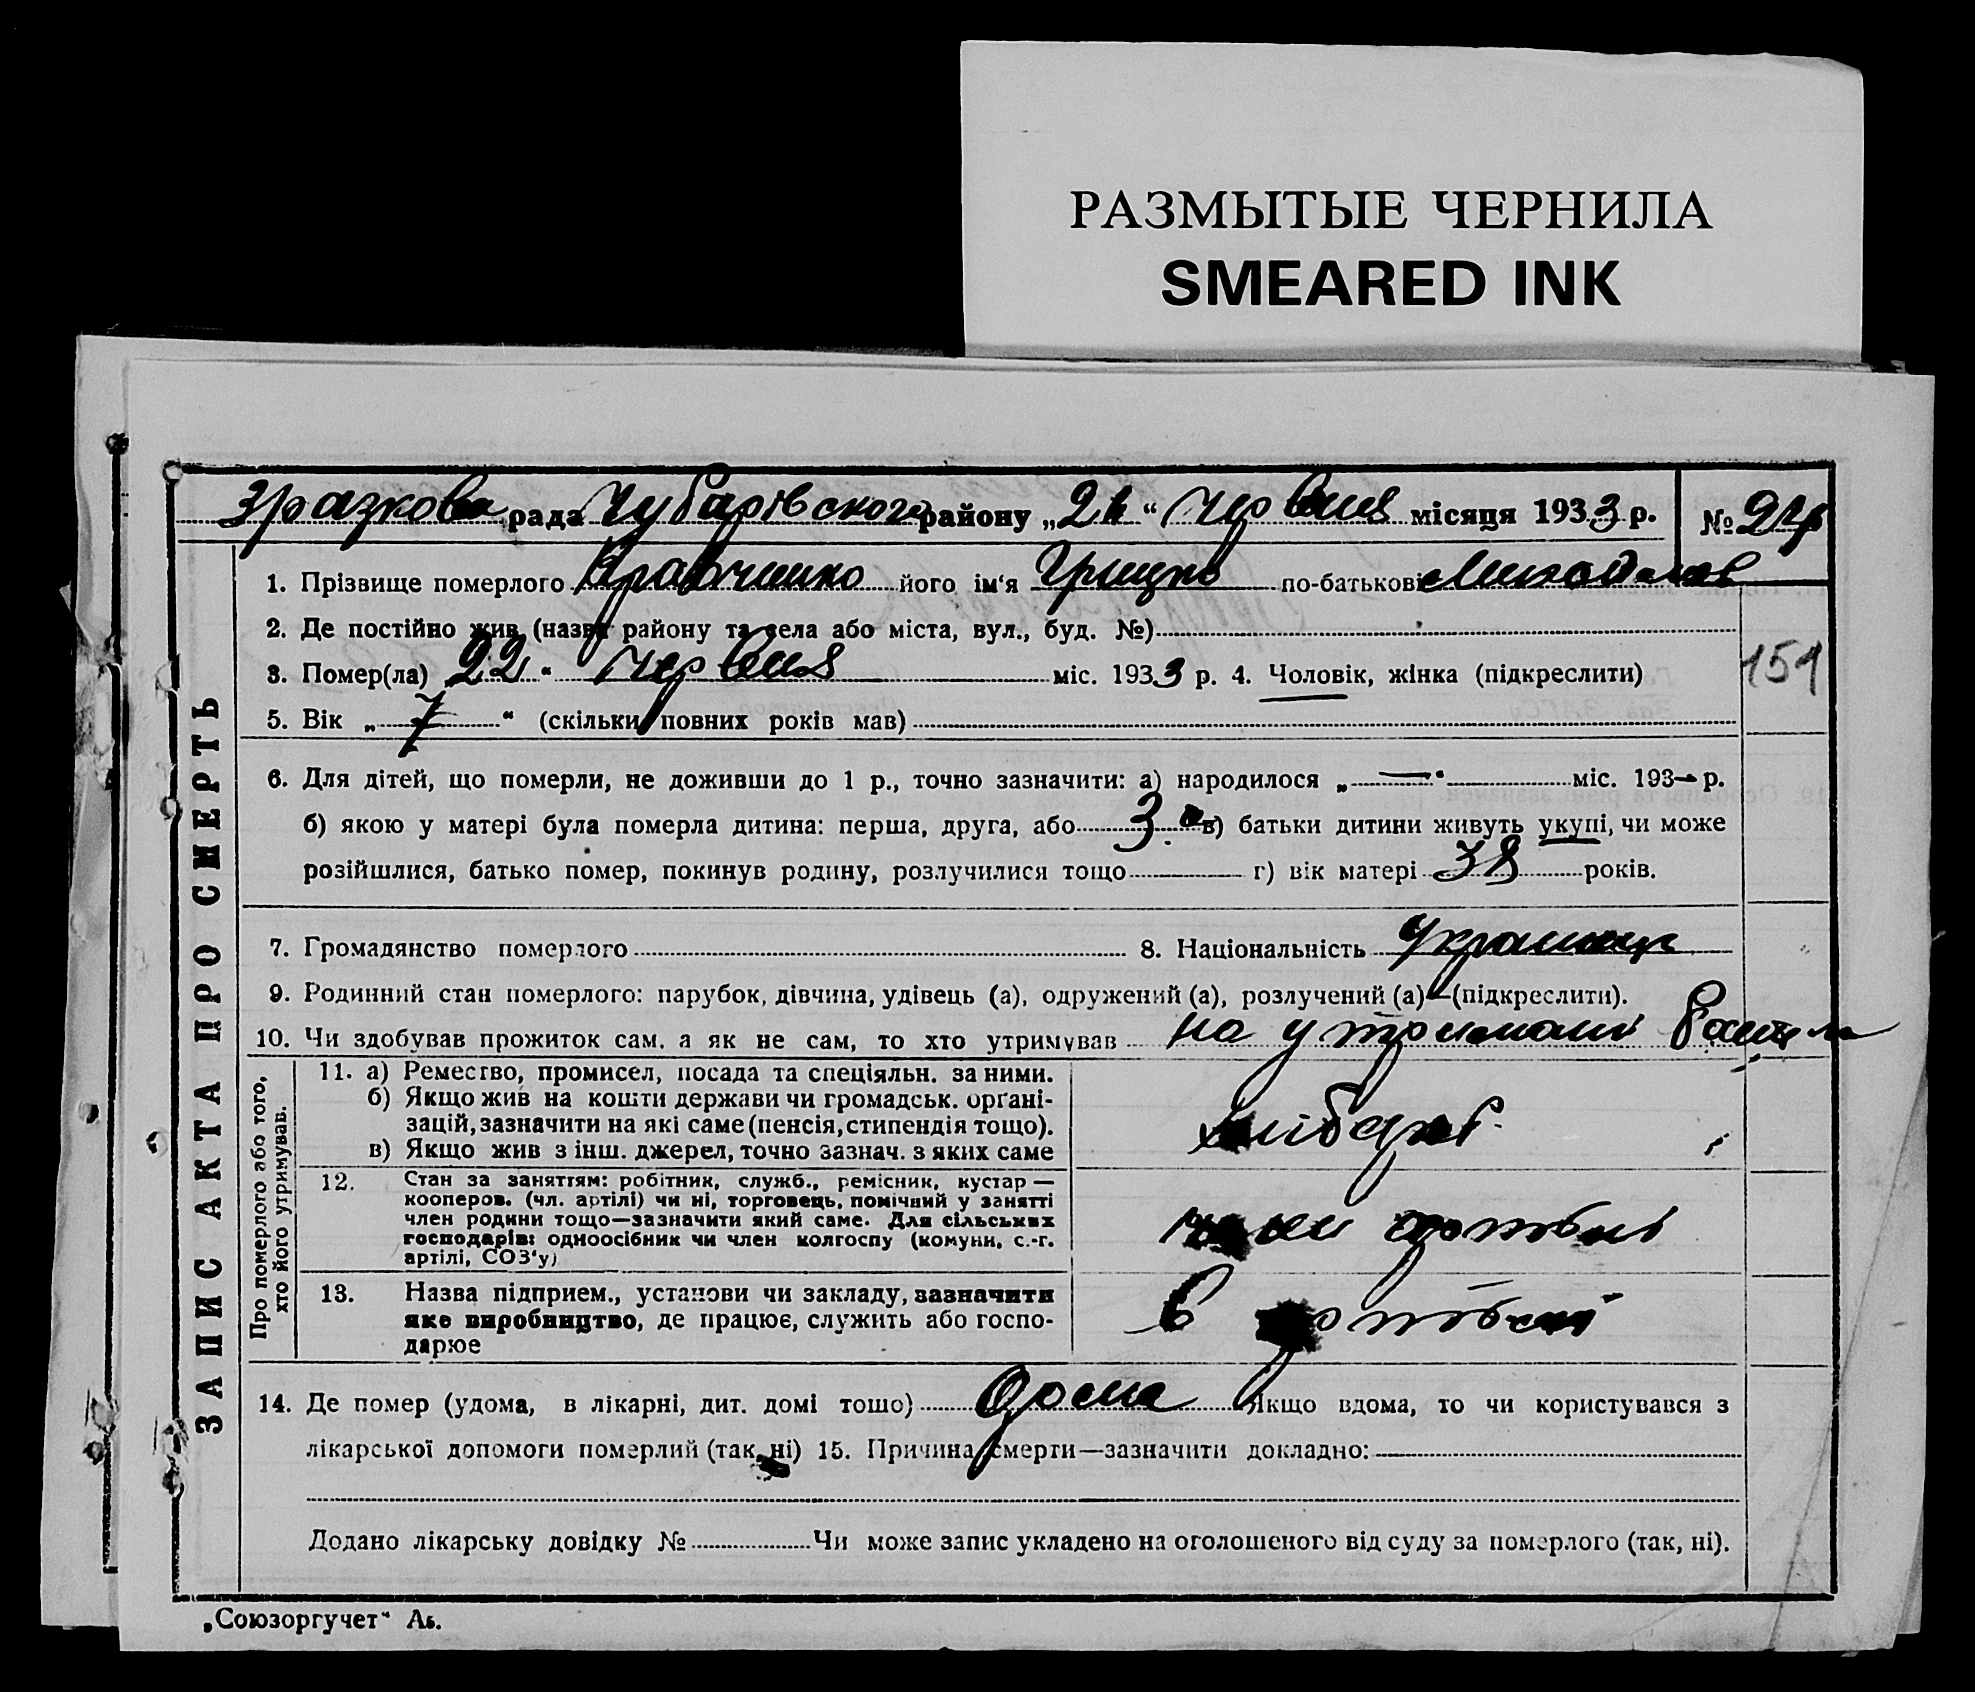 РАЗМЫТЫЕ ЧЕРНИЛА
SMEARED INK
Зразкова рада Чубарівського району „ “ червня місяця 1933 р. №
1. Прізвище померлого Кравченко його ім‘я Грицко по-батькові
2. Де постійно жив (назва району та села або міста, вул., буд. №)
3. Помер(ла) 22 “ червня міс. 1933 р. 4. Чоловік, жінка (підкреслити)
151
5. Вік „ 7 “ (скільки повних років мав)
6. Для дітей, що померли, не доживши до 1 р., точно зазначити: а) народилося „ — “ міс. 193— р.
б) якою у матері була померла дитина: перша, друга, або 3 в) батьки дитини живуть укупі, чи може
розійшлися, батько помер, покинув родину, розлучилися тощо г) вік матері 38 років.
7. Громадянство померлого 8. Національність Украинец
9. Родинний стан померлого: парубок, дівчина, удівець (а), одружений (а), розлучений (а)—(підкреслити).
10. Чи здобував прожиток сам, а як не сам, то хто утримував на утриманні
ЗАПИС АКТА ПРО СМЕРТЬ
Про померлого або того, хто його утримував.
11. а) Ремество, промисел, посада та спеціяльн. за ними.
б) Якщо жив на кошти держави чи громадськ. органі-
зацій, зазначити на які саме (пенсія, стипендія тощо).
в) Якщо жив з інш. джерел, точно зазнач. з яких саме
хлібороб
12. Стан за заняттям: робітник, служб., ремісник, кустар —
кооперов. (чл. артілі) чи ні, торговець, помічний у занятті
член родини тощо—зазначити який саме. Для сільських
господарів: одноосібник чи член колгоспу (комуни, с.-г.
артілі, СОЗ‘у)
член артілі
13. Назва підприєм., установи чи закладу, зазначити
яке виробництво, де працює, служить або госпо-
дарює
в артілі
14. Де помер (удома, в лікарні, дит. домі тощо) дома Якщо вдома, то чи користувався з
лікарської допомоги померлий (так, ні) 15. Причина смерти—зазначити докладно:
Додано лікарську довідку № Чи може запис укладено на оголошеного від суду за померлого (так, ні).
„Союзоргучет“ Аб.